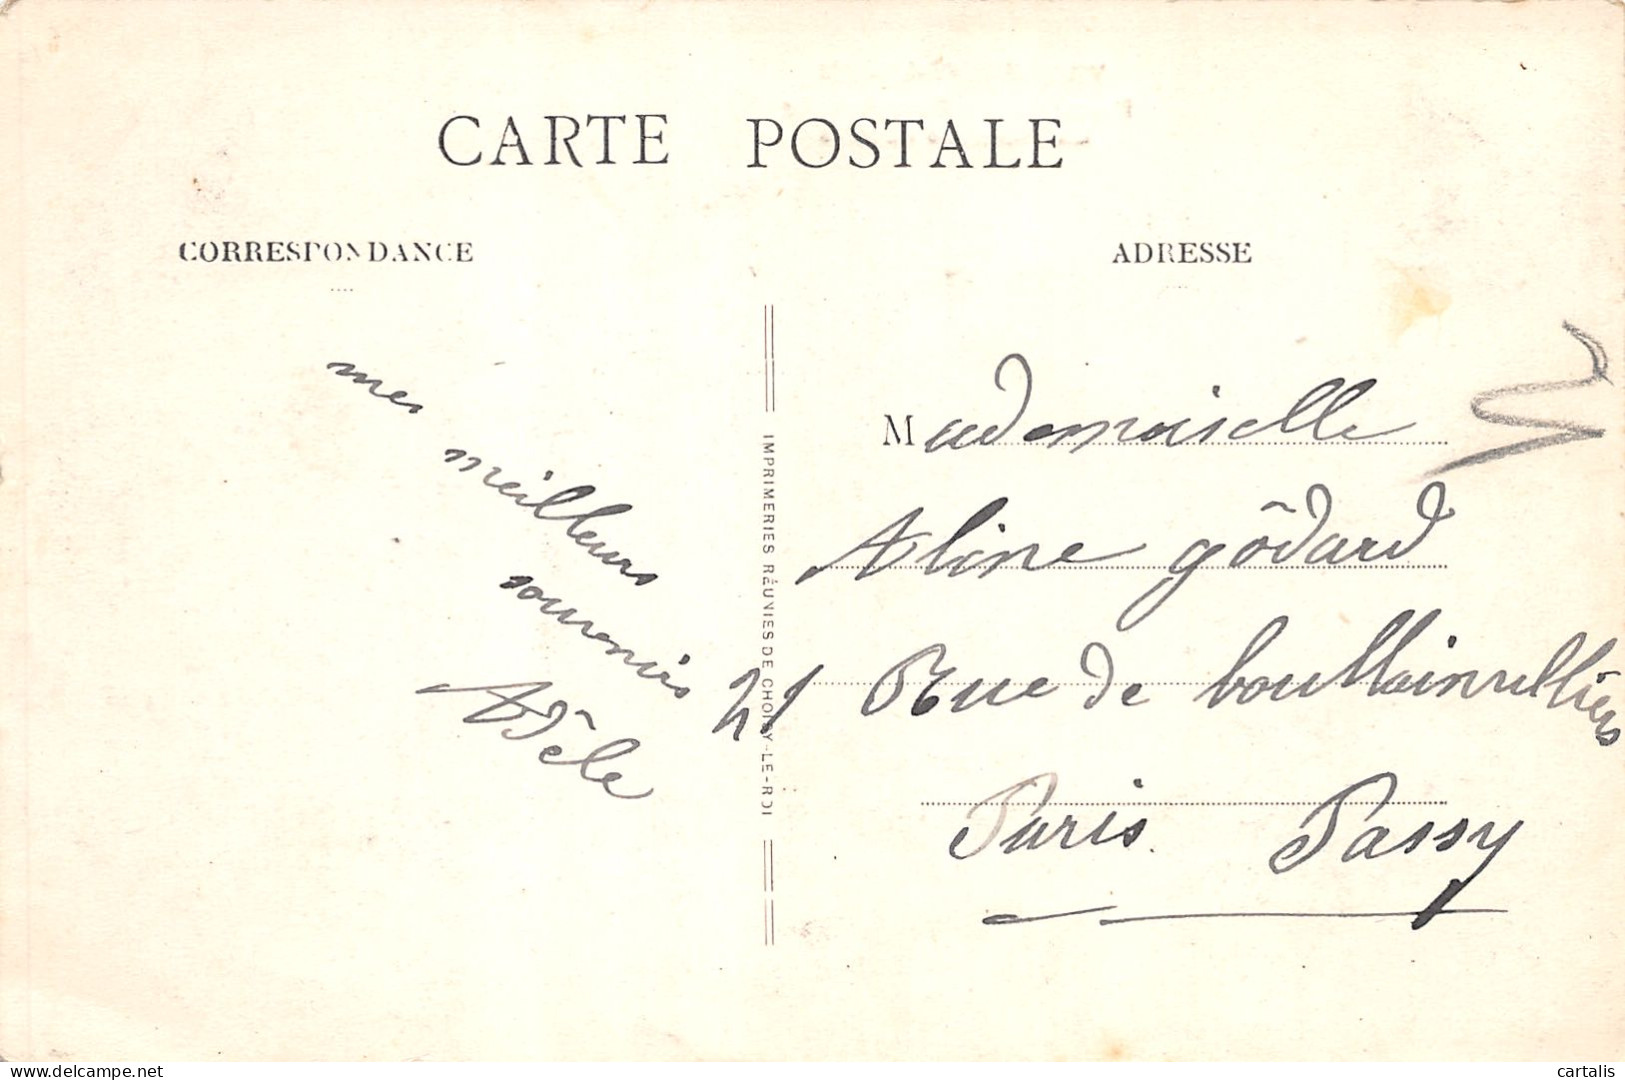 CARTE POSTALE
CORRESPONDANCE
ADRESSE
mes
meilleurs
souvenirs
Adèle
IMPRIMERIES RÉUNIES DE CHOISY-LE-ROI
Mademoiselle
Aline gôdard
21 Rue de boullainvilliers
Paris Passy
www.delcampe.net
cartalis